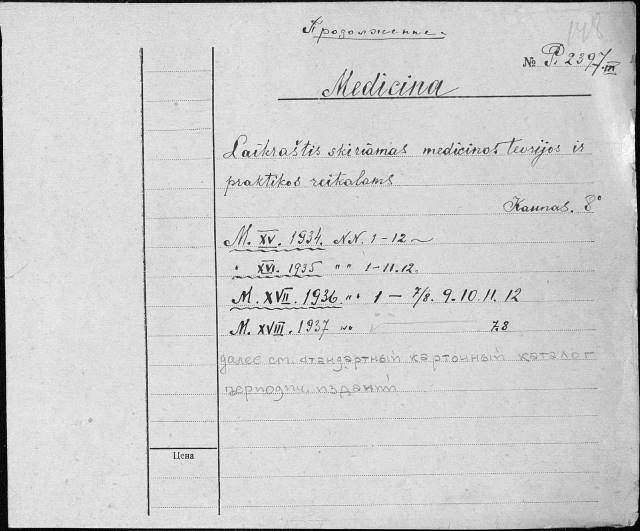 Продолженіе.
148
№ P. 2397/III
Medicina
Laikraštis skiriamas medicinos teorijos ir
praktikos reikalams
Kaunas. 8°
M. XV. 1934. NN. 1-12
" XVI. 1935 " " 1-11.12.
M. XVII. 1936. " " 1 - 7/8. 9.10.11.12
M. XVIII. 1937 " " 7.8
далее см. стандартный карточный каталог
период
Цена